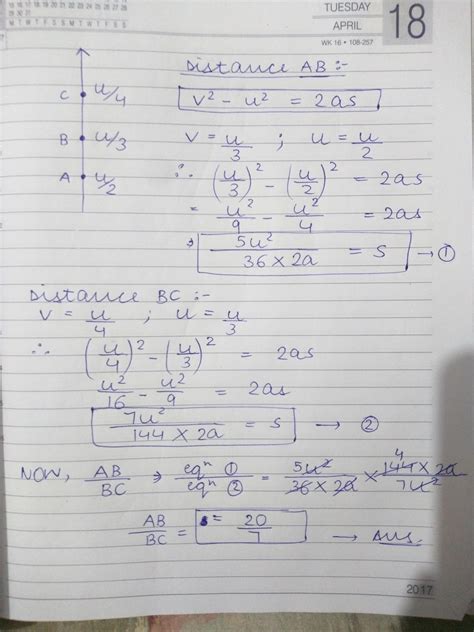 TUESDAY
APRIL
18
WK 16 • 108-257
Distance AB :-
C u/4
V² - u² = 2as
B u/3
V = u/3 ; u = u/2
A u/2
∴ (u/3)² - (u/2)² = 2as
= u²/9 - u²/4 = 2as
⇒ 5u²/36 × 2a = s → ①
Distance BC :-
V = u/4 ; u = u/3
∴ (u/4)² - (u/3)² = 2as
u²/16 - u²/9 = 2as
7u²/144 × 2a = s → ②
NOW, AB/BC ⇒ eqⁿ ①/eqⁿ ② = 5u²/36 × 2a × 4 144 × 2a/7u²
AB/BC = = 20/7 → Ans.
2017